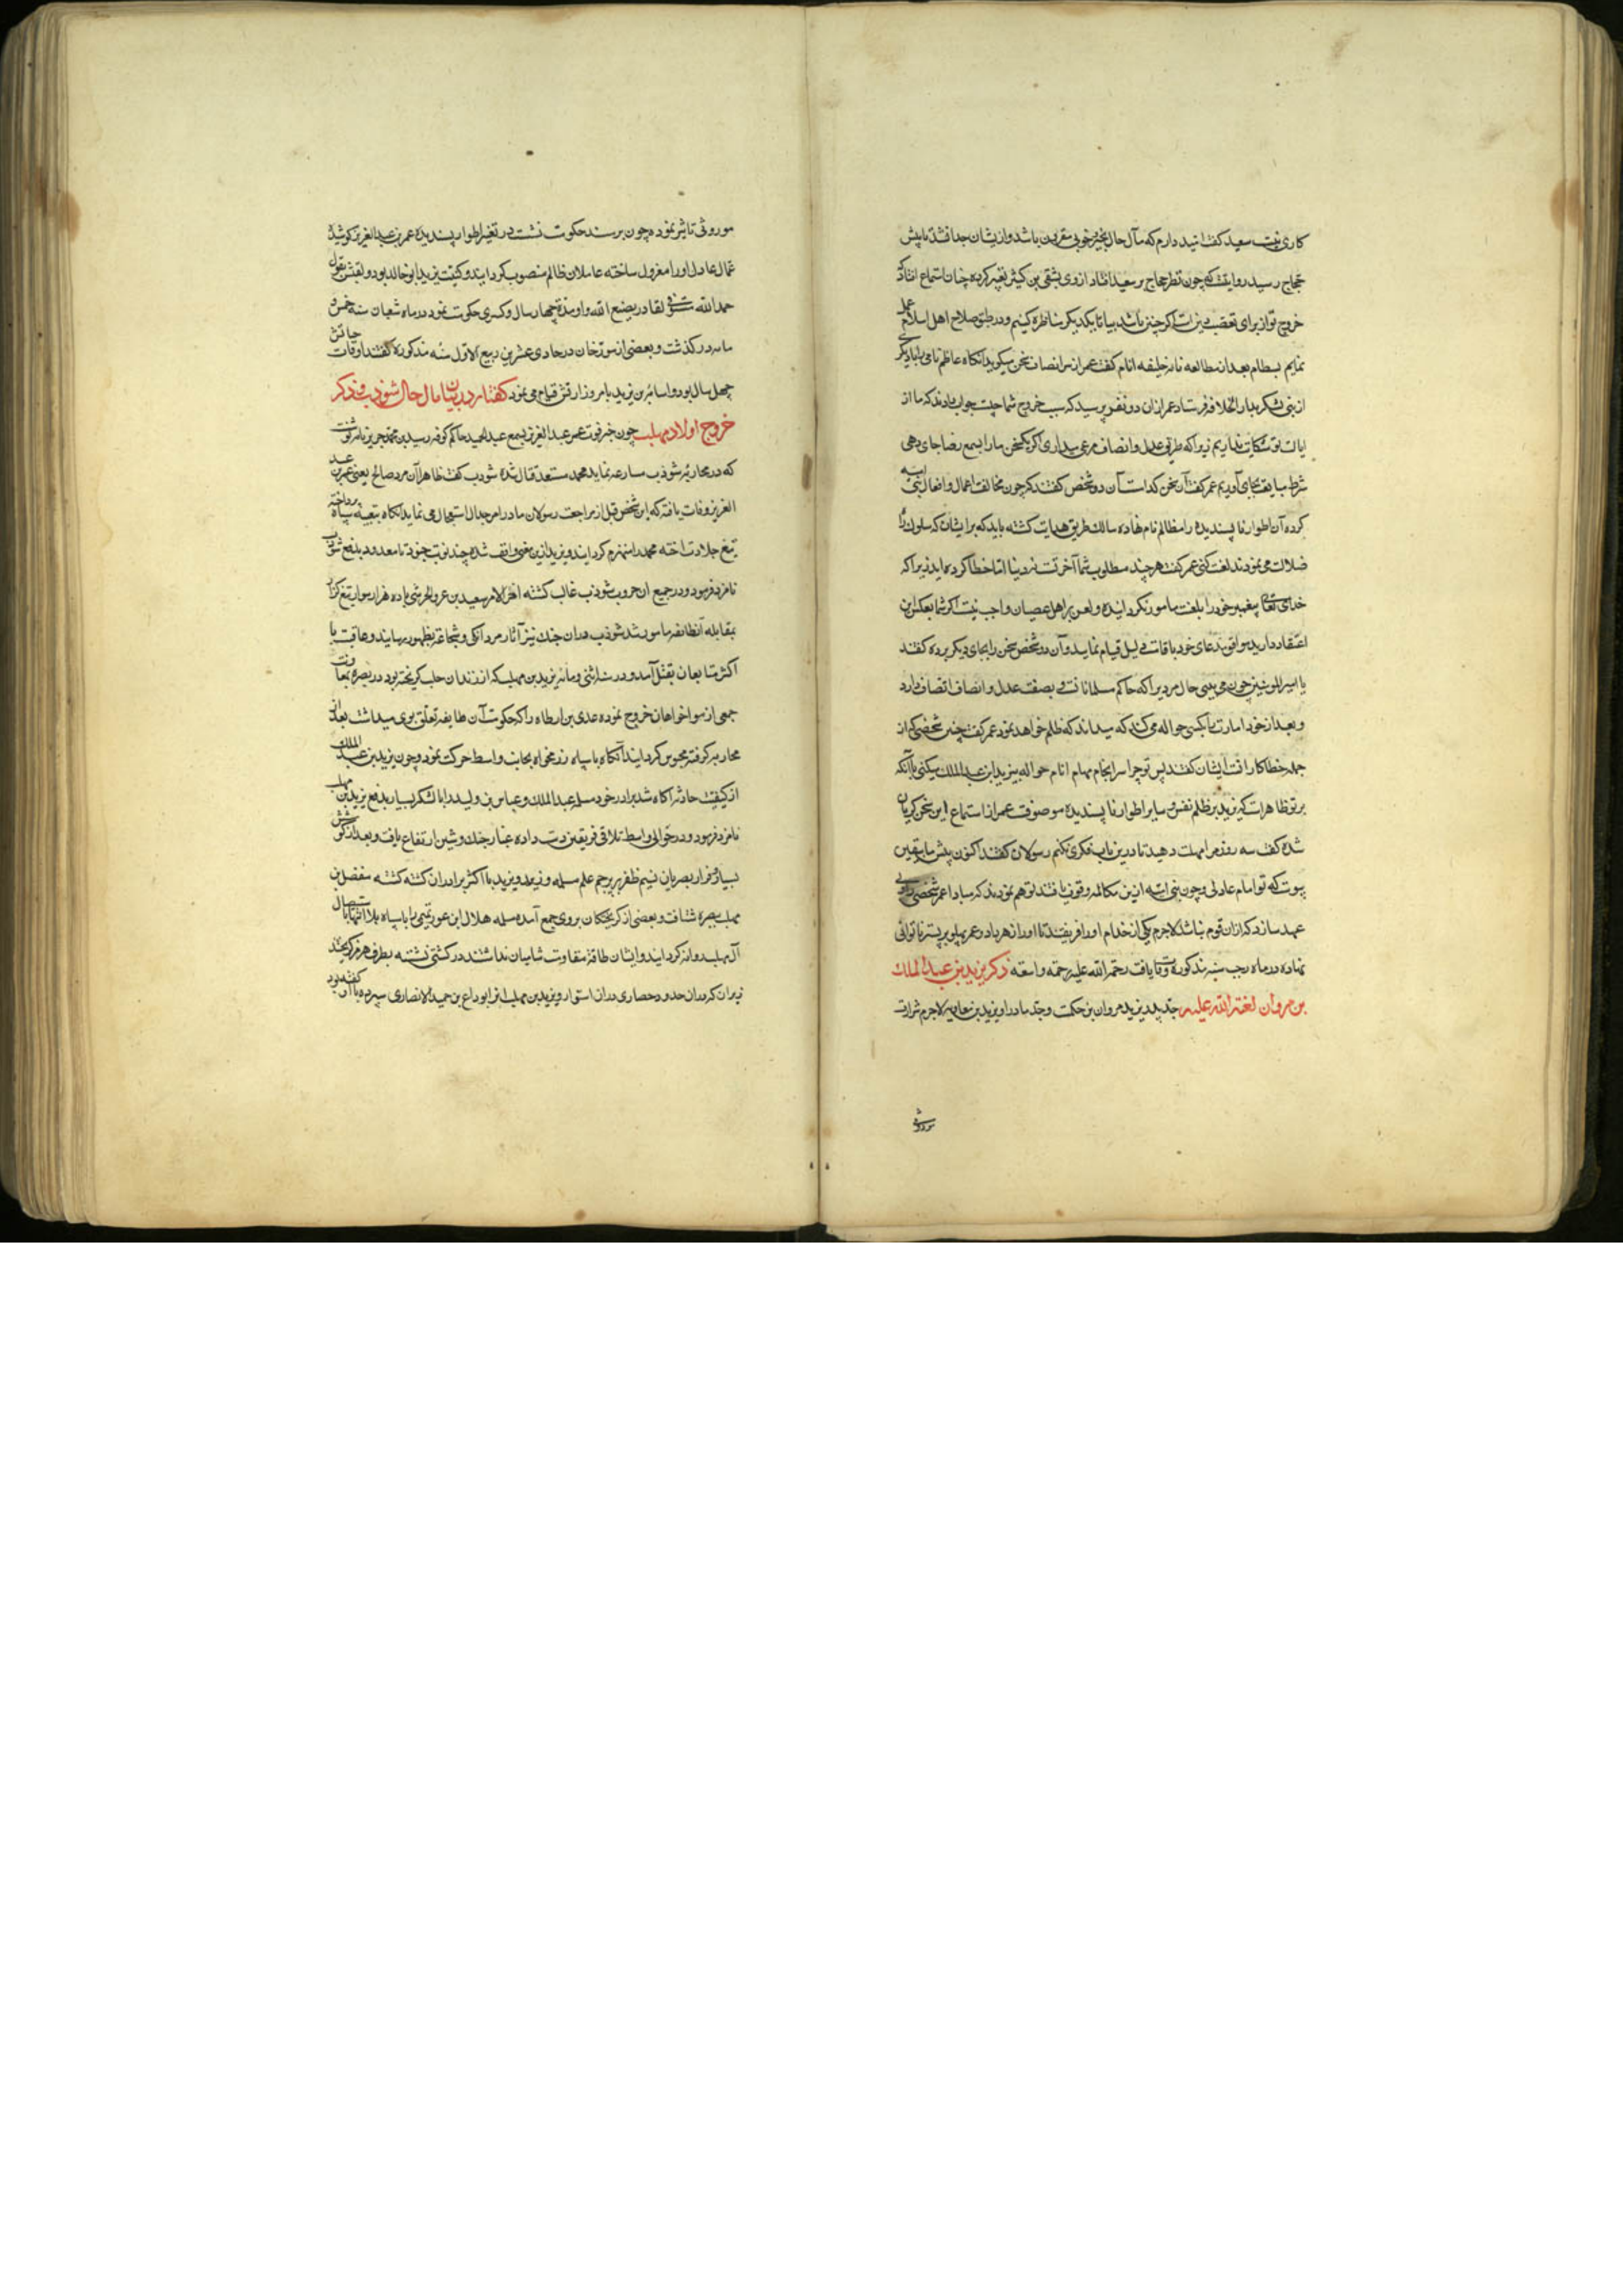 کاری نیست سعید کفت امید دارم که مآل حال بخیر و خوبی مقرون باشد و از یشان جدا نشد تا پیش
حجاج رسید روایتست که چون نظر حجاج بر سعید افتاد از وی بشقی بن کثیر تعبیر کرده
خروج تو از برای تعصب دین است اکر چنین باشد بیا تا بیکدیکر مناظره کنیم و در طریق صلاح اهل اسلام
نمایم بسطام بعد از مطالعه نامه خلیفه انام کفت عمر از سر انصاف سخن میکوید انکاه عاظم نامی را با دیکری
از بنی یشکر بدار الخلافه فرستاد عمر ازان دو نفر پرسید که سبب خروج شما چیست جواب دادند که ما از
ایالت تو شکایت نداریم زیرا که طریق عدل و انصاف مرعی میداری اکر یکسخن ما را بسمع رضا جای دهی
شرط متابعت بجای آوریم عمر کفت آن سخن کدامست آن دو شخص کفتند که چون مخالفت اعمال و افعال بنی امیه
کرده آن اطوار ناپسندیده را مظالم نام نهاده سالک طریق هدایت کشته باید که برایشان که سلوک راه
ضلالت می نمودند لعنت کنی عمر کفت هر چند مطلوب شما آخرتست نه دنیا اما خطا کرده اید زیرا که
خدای تعالی پیغمبر خود را بلعنت مامور نکردانیده و لعن بر اهل عصیان واجب نیست اکر شما بعکس این
اعتقاد دارید موافق مدعای خود باقامت دلیل قیام نمایید و آن دو شخص سخن را بجای دیکر برده کفتند
یا امیر المومنین چون می بینی حال مردیرا که حاکم مسلمانانست و بصفت عدل و انصاف اتصاف دارد
و بعد از خود امارت را بکسی حواله می کند که میداند که ظلم خواهد نمود عمر کفت چنین شخصی از
جمله خطاکارانست ایشان کفتند پس تو چرا سرانجام مهام انام حواله بیزید ابن عبد الملک میکنی با آنکه
بر تو ظاهرست که یزید بر ظلم نفس و سایر اطوار ناپسندیده موصوفست عمر از استماع این سخن کریان
شده کفت سه روز مرا مهلت دهید تا درین باب فکری بکنم رسولان کفتند اکنون پیش ما بیقین
پیوست که تو امام عادلی و چون بنی امیه ازین مکالمه وقوف یافتند توهم نمودند که مبادا عمر شخصی را ولی
عهد سازد که ازان قوم نباشد لاجرم یکی از خدام او را فریفتند تا او را زهر داد و عمر پهلو بر بستر ناتوانی
نهاده در ماه رجب سنه مذکوره وفات یافت رحمة الله علیه رحمة واسعه ذکر یزید بن عبد الملک
بن مروان لعنة الله علیه جد پدر یزید مروان بن حکمست و جد مادر او یزید بن معاویه لاجرم شرارت
موروثی
موروثی تاثیر نموده چون بر مسند حکومت نشست در تغییر اطوار پسندیده عمر بن عبد العزیز کوشیده
عمال عادل او را معزول ساخته عاملان ظالم منصوب کردانید و کنیت یزید ابو خالد بود و لقبش بقول
حمد الله مستوفی القادر بصنع الله و او مدة چهار سال و کسری حکومت نمود در ماه شعبان سنه خمس و
مایه در کذشت و بعضی از مورخان در حادی عشرین ربیع الاول سنه مذکوره کفتند اوقات حیاتش
چهل سال بود و اسامة بن یزید بامر وزارتش قیام می نمود کفتار در بیان مآل حال شوذب و ذکر
خروج اولاد مهلب چون خبر فوت عمر عبد العزیز بسمع عبد الحمید حاکم کوفه رسید بن محمد جریر نامه نوشت
که در محاربه شوذب مسارعه نماید محمد مستعد قتال شده شوذب کفت ظاهرا آن مرد صالح یعنی عمر بن عبد
العزیز وفات یافته که این شخص قبل از مراجعت رسولان ما در امر جدال استعجال می نماید انکاه بتعبیه سپاه پرداخته
تیغ جلادت اخته محمد را منهزم کردانید و یزید ازین معنی واقف شده چند نوبت جنود نامعدود بدفع شوذب
نامزد فرمود و در جمیع ان حروب شوذب غالب کشته اخر الامر سعید بن عمرو الحرشی با ده هزار سوار تیغ گذار
بمقابله آنطایفه مامور شد شوذب دران جنک نیز آثار مردانکی و شجاعت بظهور رسانید و عاقبت با
اکثر متابعان بقتل آمد و در سنه اثنی و مایه یزید بن مهلب که از زندان حلب کریخته بود در بصره بمعاونت
جمعی از هواخواهان خروج نموده عدی بن ارطاه را که حکومت آن طایفه تعلق بوی میداشت بعد از
محاربه کرفته محبوس کردانید آنکاه با سپاه رزمخواه بجانب واسط حرکت نمود و چون یزید بن عبد الملک
از کیفیت حادثه اکاه شد برادر خود مسلمه عبد الملک و عباس بن ولید را با لشکر بسیار بدفع یزید بن مهلب
نامزد فرمود و در حوالی واسط تلاقی فریقین دست داده غبار جنک و شین ارتفاع یافت و بعد از کوشش
بسیار و فرار بصریان نسیم ظفر بر پرچم علم مسلمه وزید و یزید با اکثر برادران کشته کشته مفضل بن
مهلب ببصره شتافت و بعضی از کریختکان بر وی جمع آمده مسلمه هلال ابن عور تمیمی را با سپاه بلا انتها باستیصال
آل مهلب روانه کردانید و ایشان طاقة مقاومت شامیان نداشتند در کشتی نشسته بطرف هرمز کریختند
زیرا که دران حدود حصاری دران استوار و یزید بن مهلب انرا بوداع بن حمید الانصاری سپرده با او کفته بود